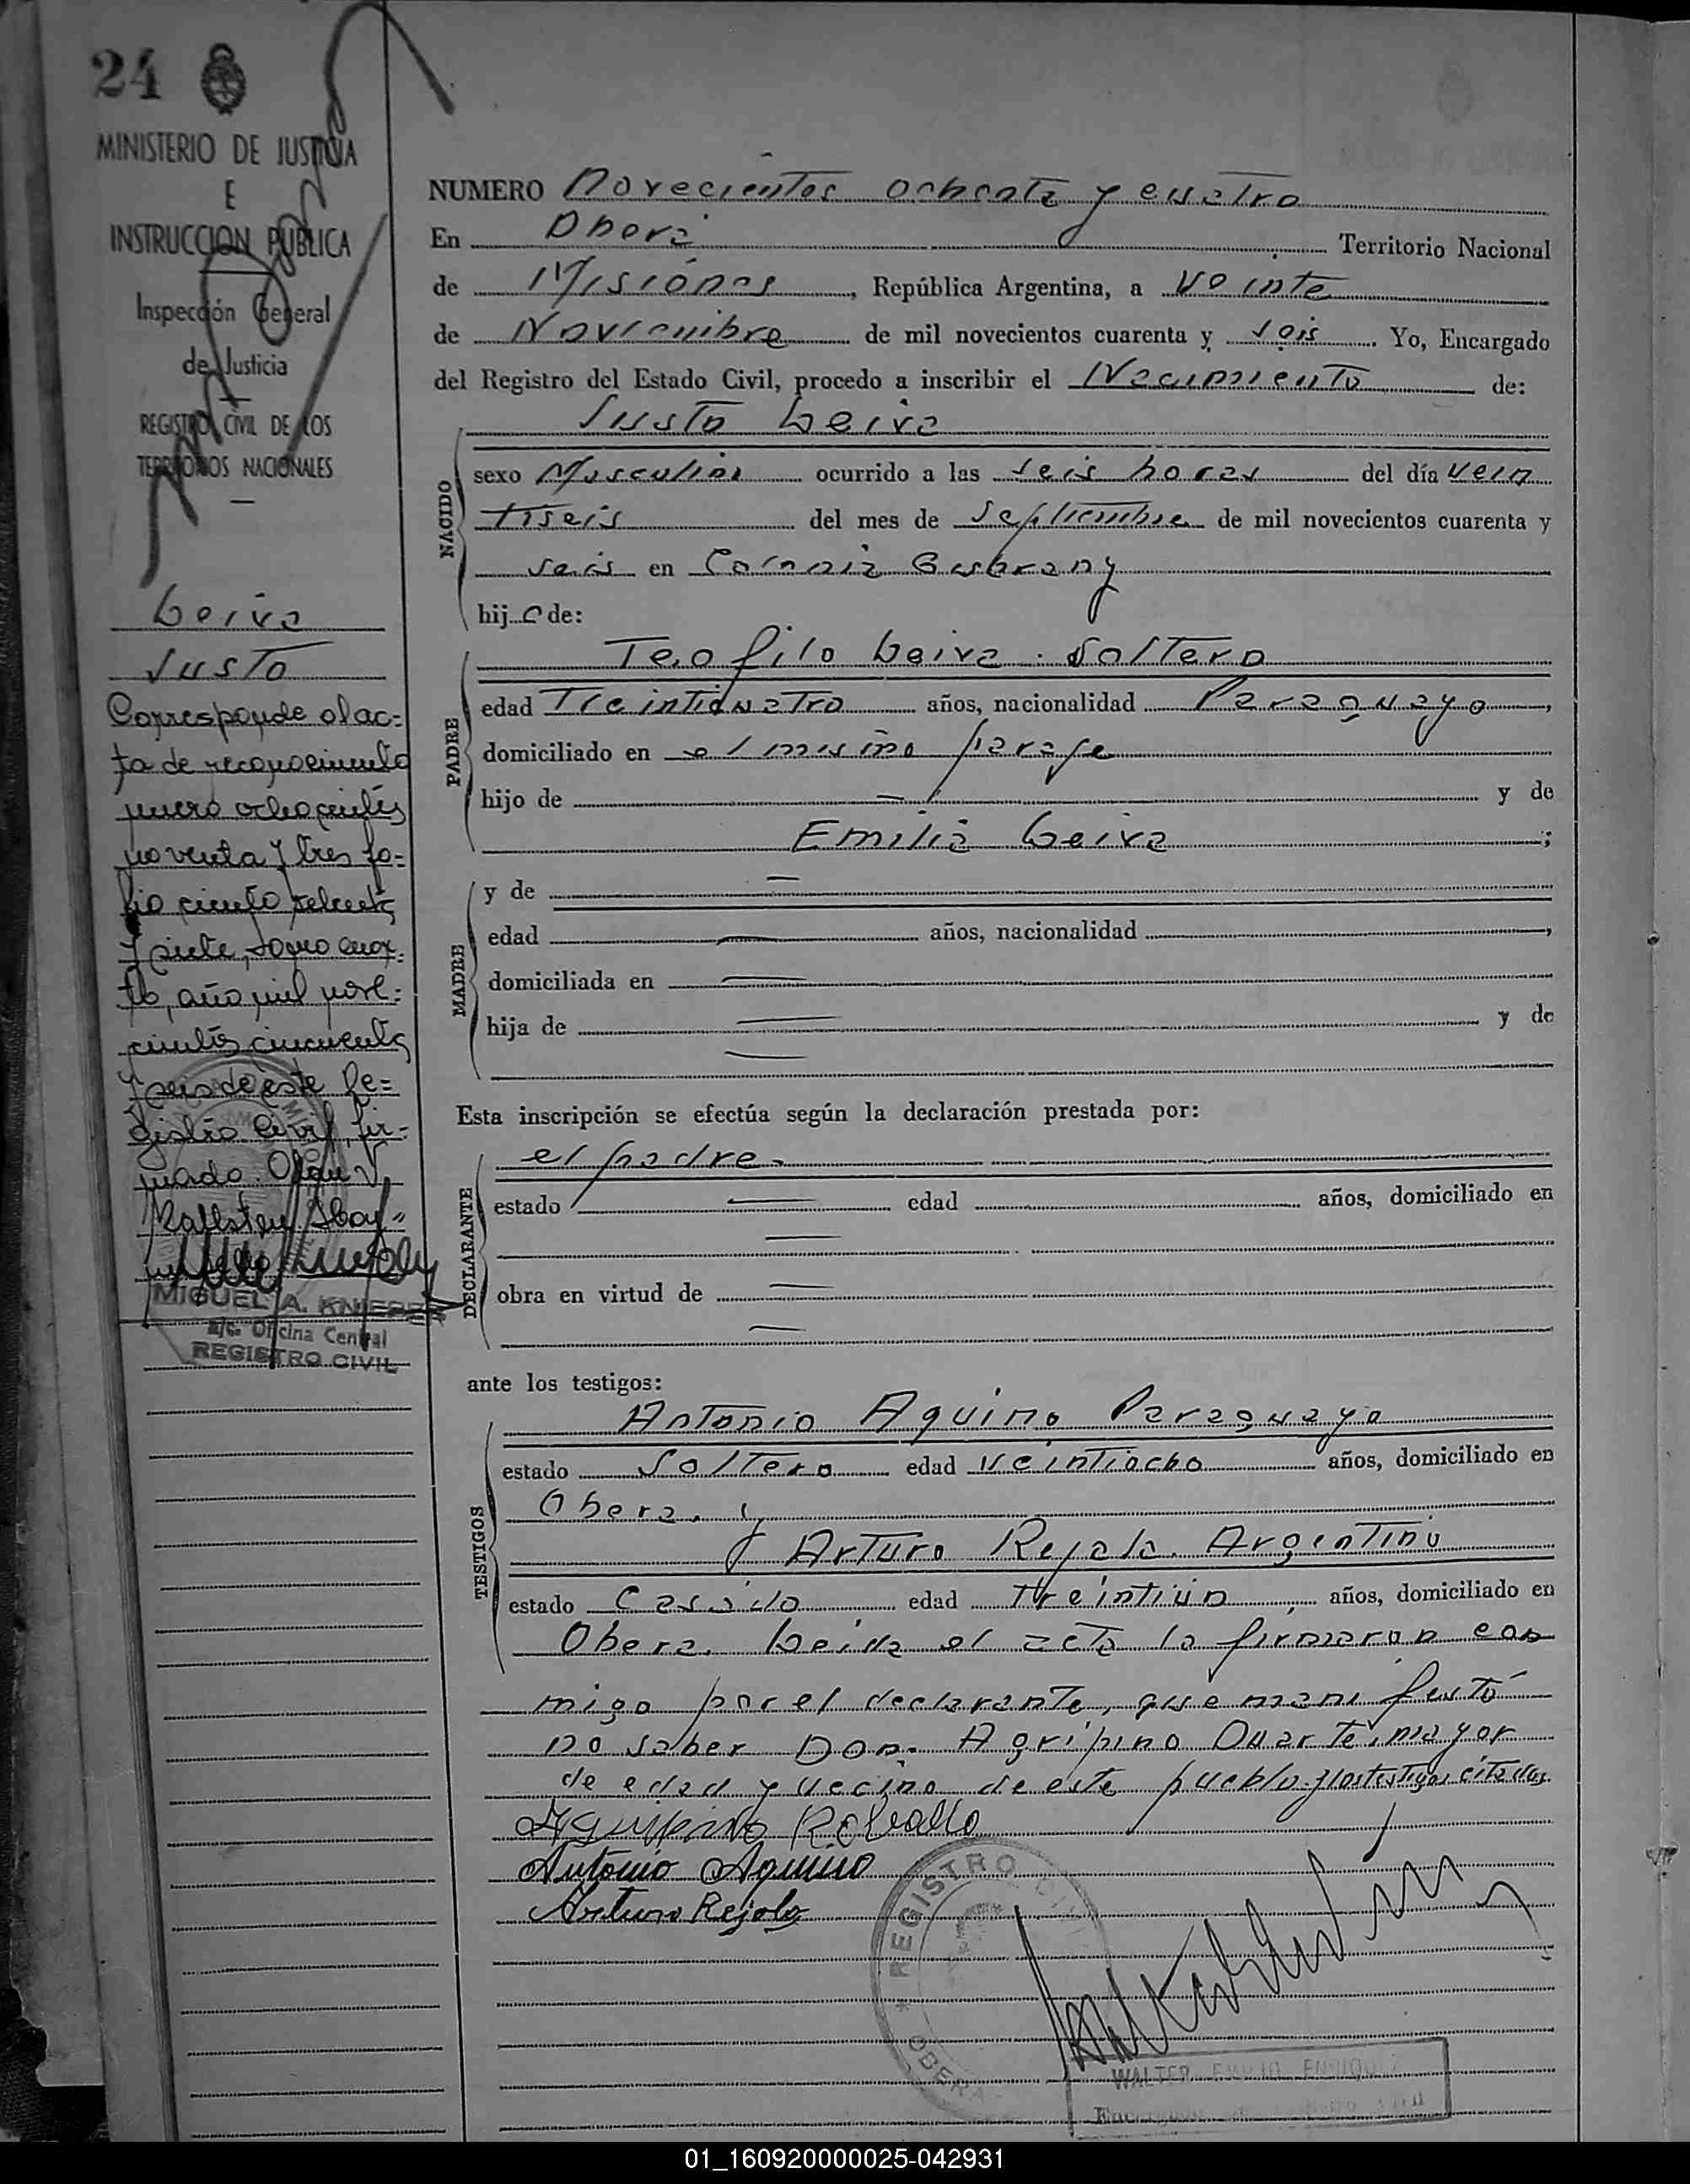 24
MINISTERIO DE JUSTICIA
E
INSTRUCCION PUBLICA
Inspección General
de Justicia
REGISTRO CIVIL DE LOS
TERRITORIOS NACIONALES
Leiva
Justo
Corresponde al ac=
ta de reconocimiento
número ochocientos
noventa y tres fo=
lio ciento setenta
y siete, tomo cuar.
to, año mil nove=
cientos cincuenta
y seis de este Re=
gistro Civil, fir=
mado. V.
MIGUEL A. KNIEBEL
a/c. Oficina Central
REGISTRO CIVIL
NUMERO Novecientos ochenta y cuatro
En Oberá Territorio Nacional
de Misiones, República Argentina, a Veinte
de Noviembre de mil novecientos cuarenta y seis. Yo, Encargado
del Registro del Estado Civil, procedo a inscribir el Nacimiento de:
NACIDO
Justo Leiva
sexo Masculino ocurrido a las seis horas del día vein
tiseis del mes de Septiembre de mil novecientos cuarenta y
seis en Colonia Guarany
hijo de:
PADRE
Teofilo Leiva. Soltero
edad Treinticuatro años, nacionalidad Paraguayo,
domiciliado en el mismo paraje
hijo de — y de
Emilia Leiva;
MADRE
y de —
edad — años, nacionalidad ,
domiciliada en —
hija de — y de
—
Esta inscripción se efectúa según la declaración prestada por:
DECLARANTE
el padre.
estado — edad años, domiciliado en
—
obra en virtud de —
—
ante los testigos:
TESTIGOS
Antonio Aquino Paraguayo
estado Soltero edad Veintiocho años, domiciliado en
Obera. y
Arturo Rejala. Argentino
estado Casado edad Treintiun años, domiciliado en
Obera. Leida el acta la firmaron con
migo por el declarante, que manifestó
no saber Don. Agripino Duarte, mayor
de edad y vecino de este pueblo y los testigos citados.
Antonio Aquino
Arturo Rejala
REGISTRO CIVIL
OBERA
WALTER EMILIO ENRIQUE
01_160920000025-042931